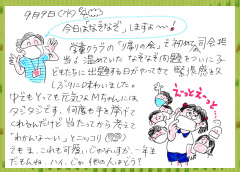 9月9日(水)
今日はなぞなぞしますよ〜!
学童クラブの「帰りの会」を初めて司会担
当!温めていたなぞなぞ問題をついに子
どもたちに出題する日がやってきて緊張感を久
しぶりに味わいました。
中でもとっても元気なMちゃんには
タジタジです。何度も手を挙げて
くれるんだけど当たってから考えて
「わかんな〜い」とニッコリ
でもま、これも可愛いじゃないか、一年生
だもんね。ハイ、じゃ他の人はどう?
えーっとえーっと…